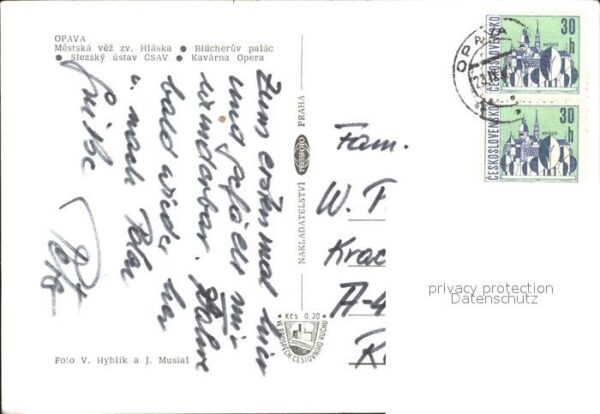 OPAVA
Městská věž zv. Hláska • Blücherův palác
• Slezský ústav ČSAV • Kavárna Opera
Zum ersten mal hier
und gefällt mir
wunderbar.
bald wieder her
u. nach Polen
Grüße
NAKLADATELSTVÍ ORBIS PRAHA
Kčs 0,20
VE PROSPĚCH CESTOVNÍHO RUCHU
Foto V. Hyhlík a J. Musial
ČESKOSLOVENSKO
30 h
KOŠICE
ČESKOSLOVENSKO
30 h
KOŠICE
OPAVA
Fam.
W.
Krac
A-4
privacy protection
Datenschutz